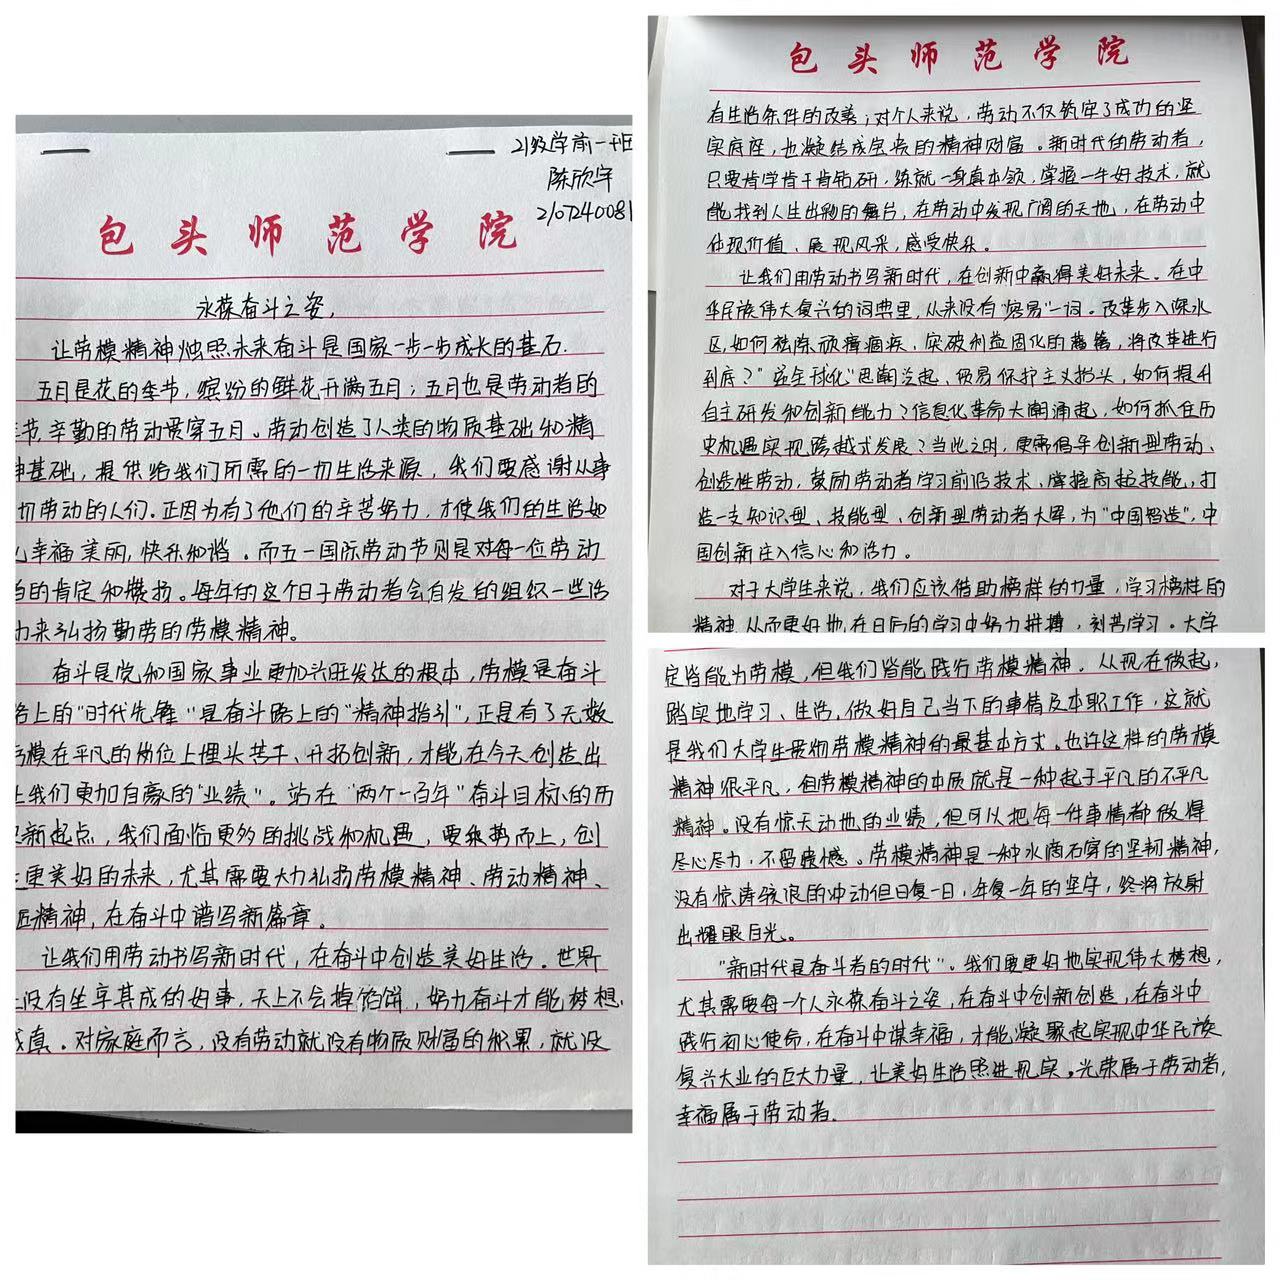 21级学前一班
陈欣宇
2107240081
包头师范学院
永葆奋斗之姿,
让劳模精神烛照未来奋斗是国家一步一步成长的基石.
五月是花的季节,缤纷的鲜花开满五月;五月也是劳动者的
节,辛勤的劳动贯穿五月。劳动创造了人类的物质基础和精
基础,提供给我们所需的一切生活来源,我们要感谢从事
切劳动的人们.正因为有了他们的辛苦努力,才使我们的生活如
幸福美丽,快乐和谐。而五一国际劳动节则是对每一位劳动
的肯定和横扬。每年的这个日子劳动者会自发的组织一些活
来弘扬勤劳的劳模精神。
奋斗是党和国家事业更加兴旺发达的根本,劳模是奋斗
上的"时代先锋"是奋斗路上的"精神指引",正是有了无数
模在平凡的岗位上埋头苦干、开拓创新,才能在今天创造出
我们更加自豪的"业绩"。站在"两个一百年"奋斗目标的历
新起点,我们面临更多的挑战和机遇,要乘势而上,创
更美好的未来,尤其需要大力弘扬劳模精神、劳动精神、
匠精神,在奋斗中谱写新篇章。
让我们用劳动书写新时代,在奋斗中创造美好生活。世界
没有坐享其成的好事,天上不会掉馅饼,努力奋斗才能梦想
真。对家庭而言,没有劳动就没有物质财富的积累,就没
包头师范学院
有生活条件的改善;对个人来说,劳动不仅铸牢了成功的坚
实底座,也凝结成宝贵的精神财富。新时代的劳动者,
只要肯学肯干肯钻研,练就一身真本领,掌握一手好技术,就
能找到人生出彩的舞台,在劳动中发现广阔的天地,在劳动中
体现价值、展现风采,感受快乐。
让我们用劳动书写新时代,在创新中赢得美好未来。在中
华民族伟大复兴的词典里,从来没有"容易"一词。改革步入深水
区,如何祛除顽瘴痼疾、突破利益固化的藩篱,将改革进行
到底?"逆全球化"思潮泛起、贸易保护主义抬头,如何提升
自主研发和创新能力?信息化革命大潮涌起,如何抓住历
史机遇实现跨越式发展?当此之时,更需倡导创新型劳动、
创造性劳动,鼓励劳动者学习前沿技术、掌握高超技能,打
造一支知识型、技能型、创新型劳动者大军,为"中国智造",中
国创新注入信心和活力。
对于大学生来说,我们应该借助榜样的力量,学习榜样的
精神,从而更好地在日后的学习中努力拼搏,刻苦学习。大学
定皆能为劳模,但我们皆能践行劳模精神。从现在做起,
踏实地学习、生活,做好自己当下的事情及本职工作,这就
是我们大学生贯彻劳模精神的最基本方式。也许这样的劳模
精神很平凡,但劳模精神的本质就是一种起于平凡的不平凡
精神。没有惊天动地的业绩,但可以把每一件事情都做得
尽心尽力,不留遗憾。劳模精神是一种水滴石穿的坚韧精神,
没有惊涛骇浪的冲动但日复一日,年复一年的坚守,终将放射
出耀眼目光。
"新时代是奋斗者的时代"。我们要更好地实现伟大梦想,
尤其需要每一个人永葆奋斗之姿,在奋斗中创新创造,在奋斗中
践行初心使命,在奋斗中谋幸福,才能凝聚起实现中华民族
复兴大业的巨大力量,让美好生活照进现实。光荣属于劳动者,
幸福属于劳动者.